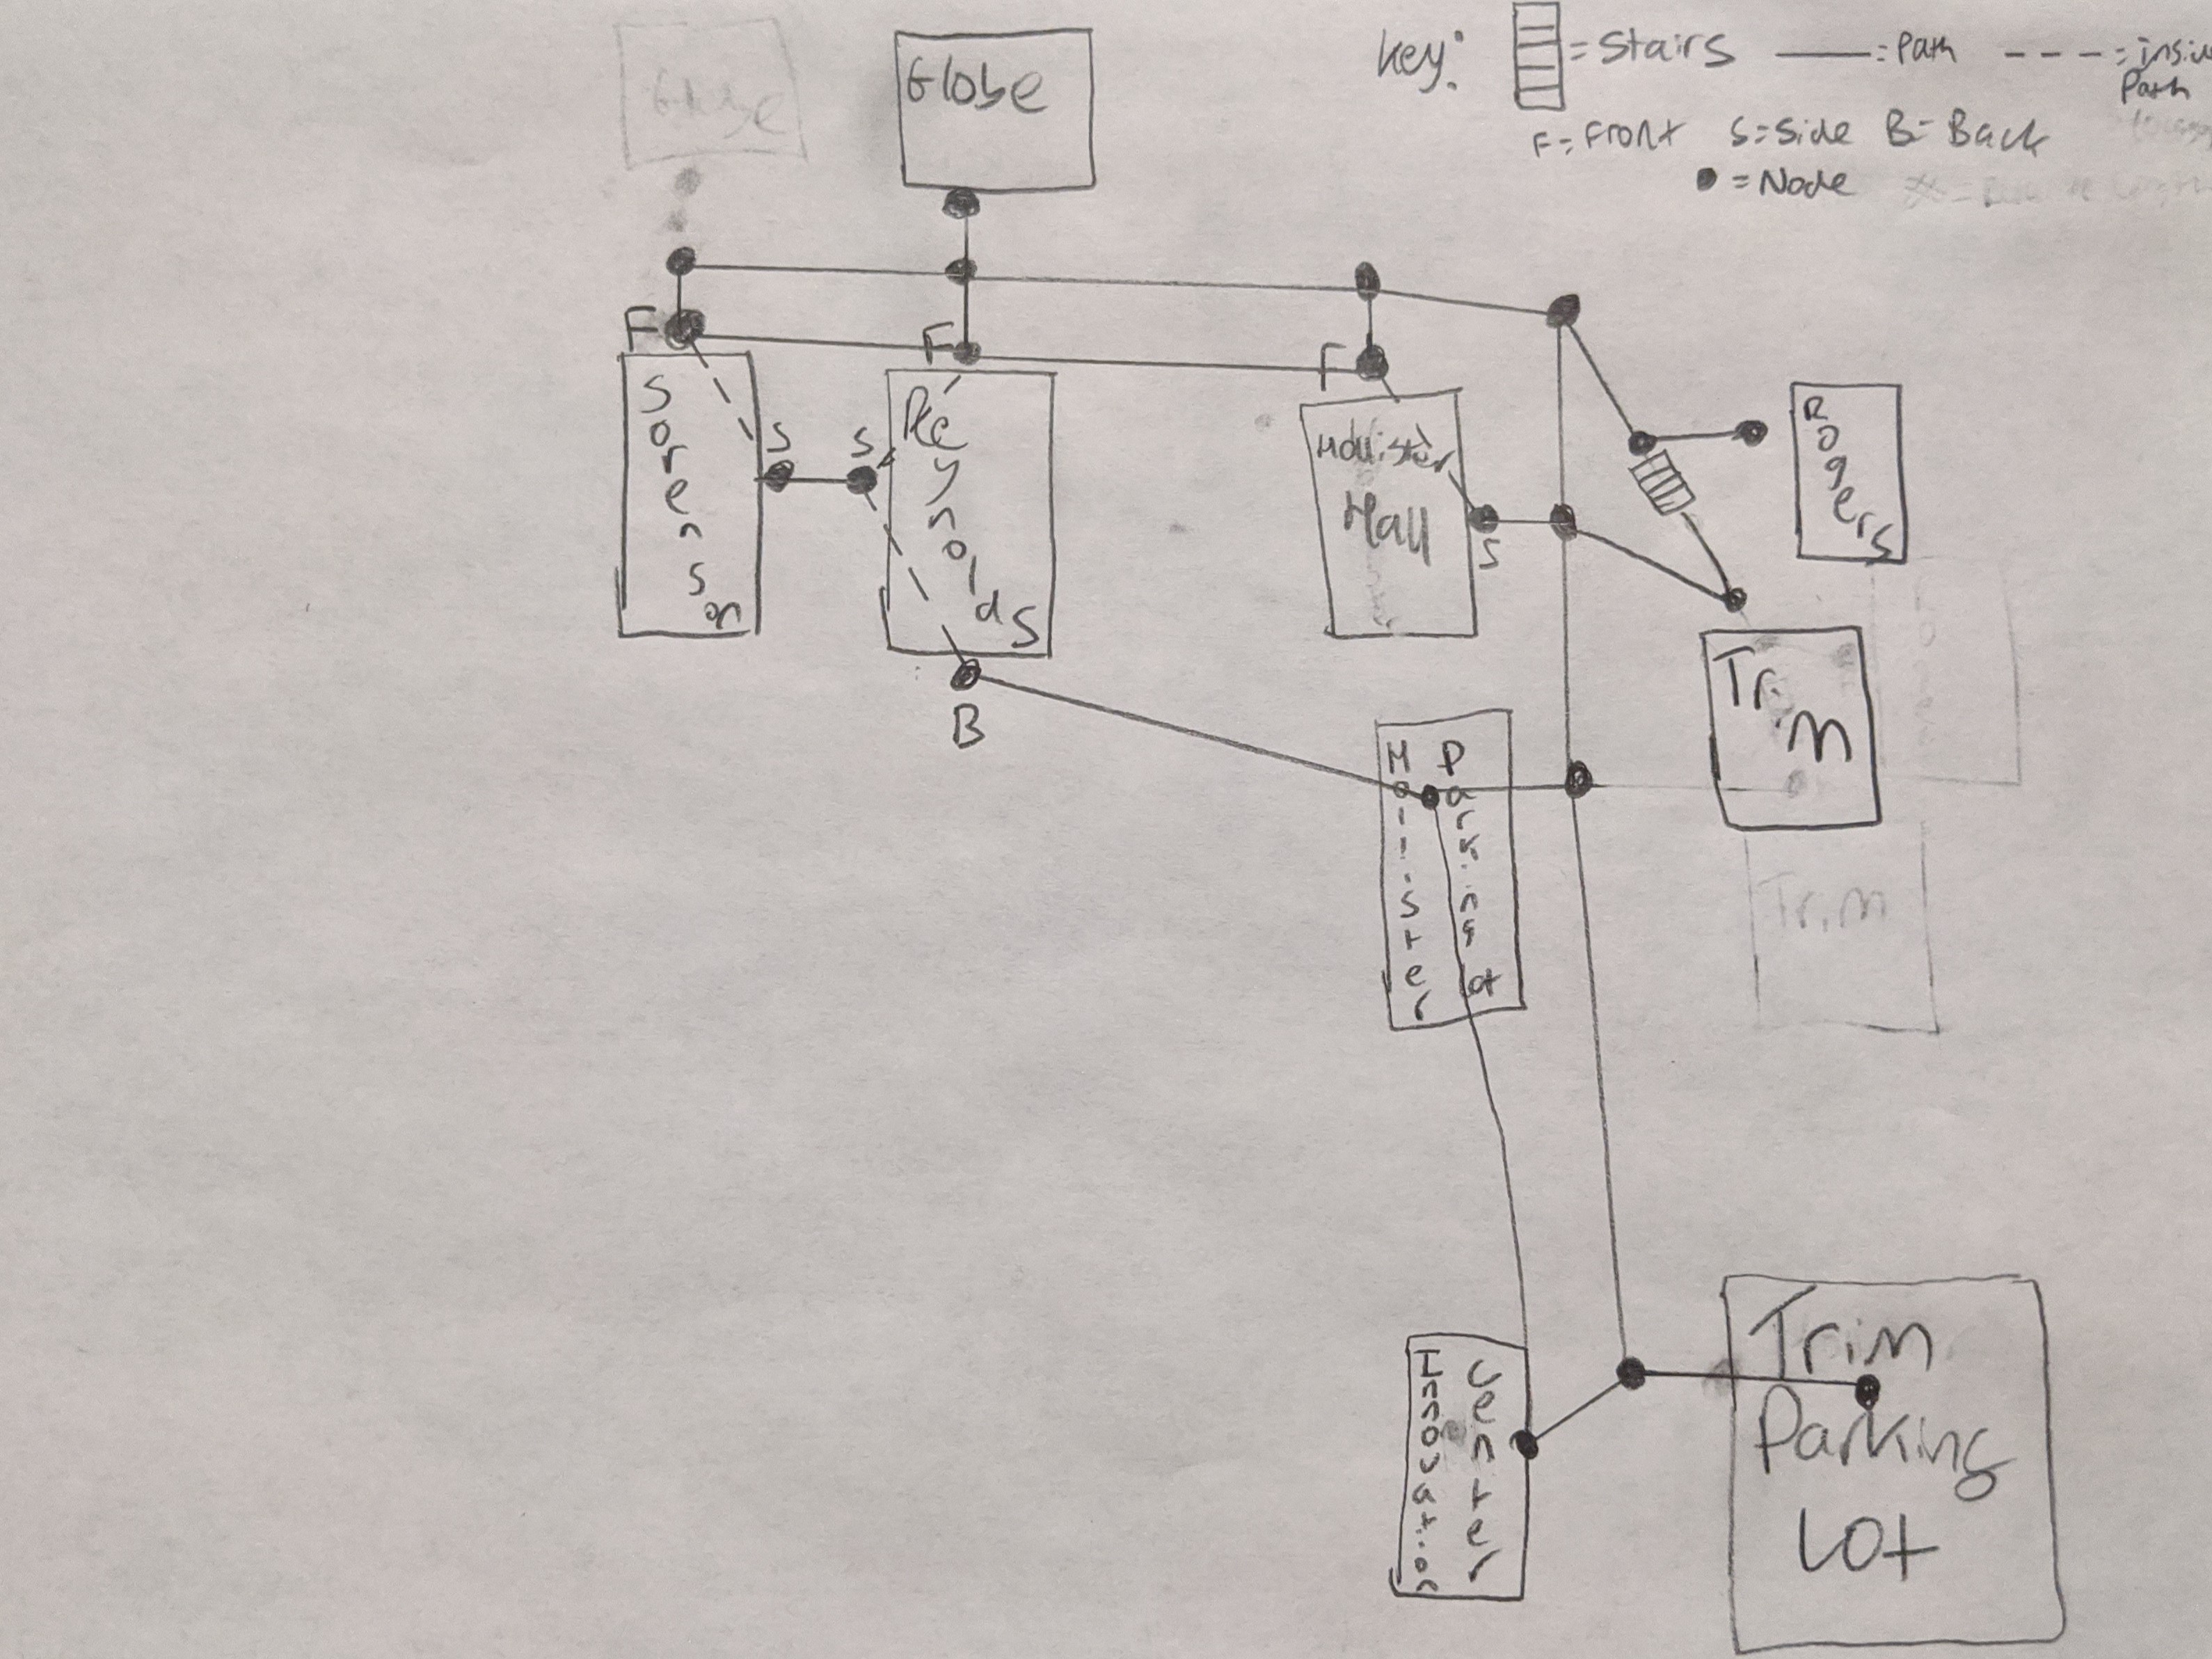 Key: = Stairs = Path = insi
Path
F = Front S = Side B = Back
= Node
Globe
Globe
F
F
F
Sorenson
S
S
Reynolds
B
Hollister
Hall
S
Rogers
Trim
Hollister Parking Lot
Trim
Innovation Center
Trim
Parking
Lot